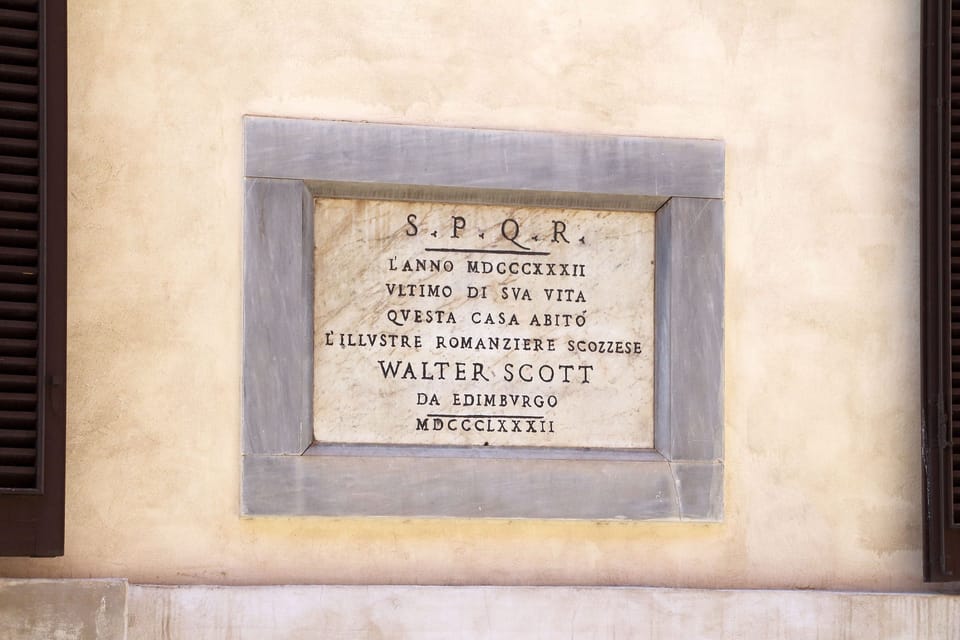 S. P. Q. R.
L'ANNO MDCCCXXXII
VLTIMO DI SVA VITA
QVESTA CASA ABITÓ
L'ILLVSTRE ROMANZIERE SCOZZESE
WALTER SCOTT
DA EDIMBVRGO
MDCCCLXXXII